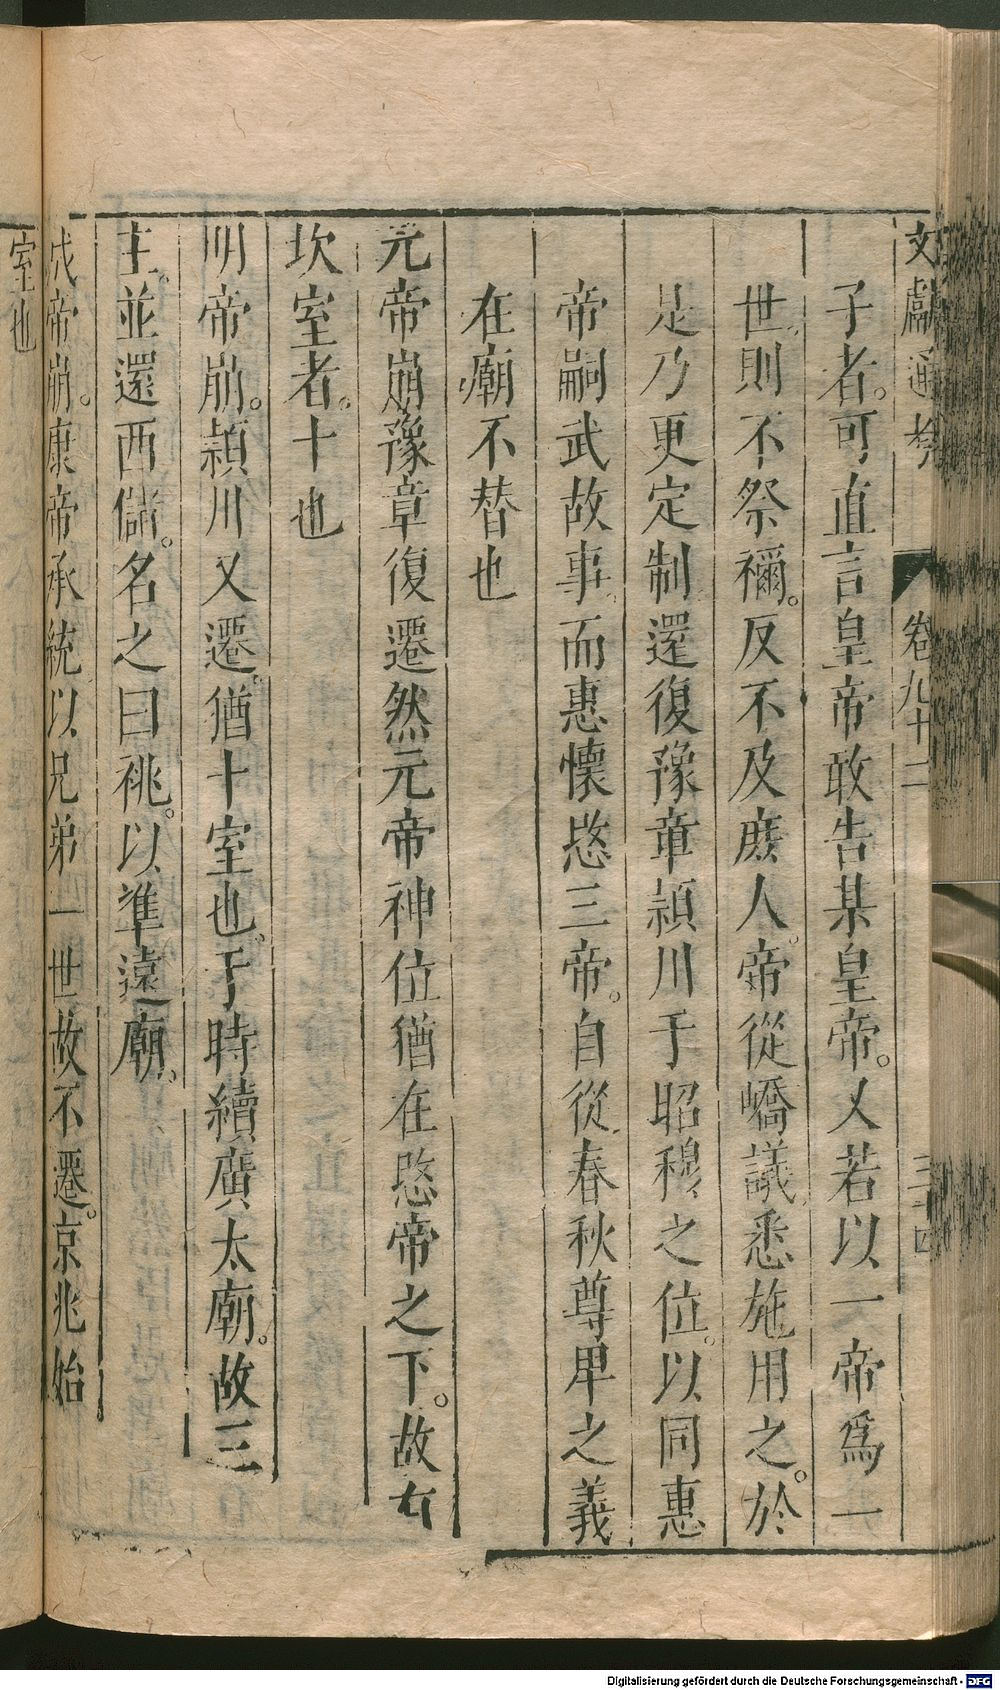 文獻通考 卷九十二 三十四
子者。可直言皇帝敢告某皇帝。又若以一帝爲一
世則不祭禰。反不及庶人。帝從嶠議悉施用之。於
是乃更定制還復豫章潁川于昭穆之位。以同惠
帝嗣武故事而惠懷愍三帝。自從春秋尊卑之義
在廟不替也
元帝崩豫章復遷然元帝神位猶在愍帝之下。故有
坎室者。十也
明帝崩。潁川又遷。猶十室也。于時續廣太廟。故三
主。並還西儲。名之曰祧。以準遠廟。
成帝崩。康帝承統以兄弟一世故不遷。京兆始
室也
Digitalisierung gefördert durch die Deutsche Forschungsgemeinschaft - DFG